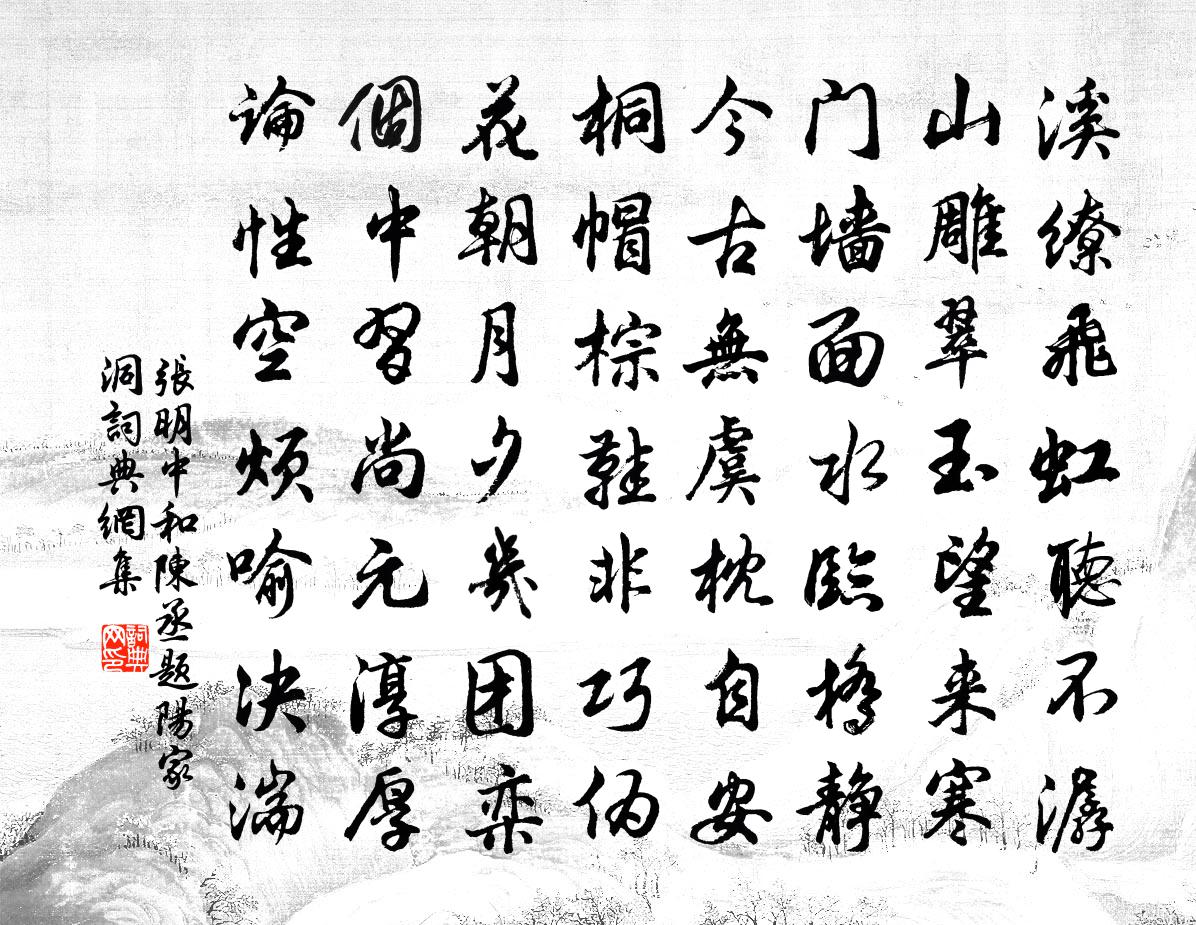 溪缭飛虹聽不潺
山雕翠玉望来寒
门墙面水臨橋静
今古無虞枕自安
桐帽棕鞋非巧伪
花朝月夕幾团栾
個中習尚元淳厚
論性空烦喻決湍
張明中和陳丞題陽家
洞詞典網集
詞典